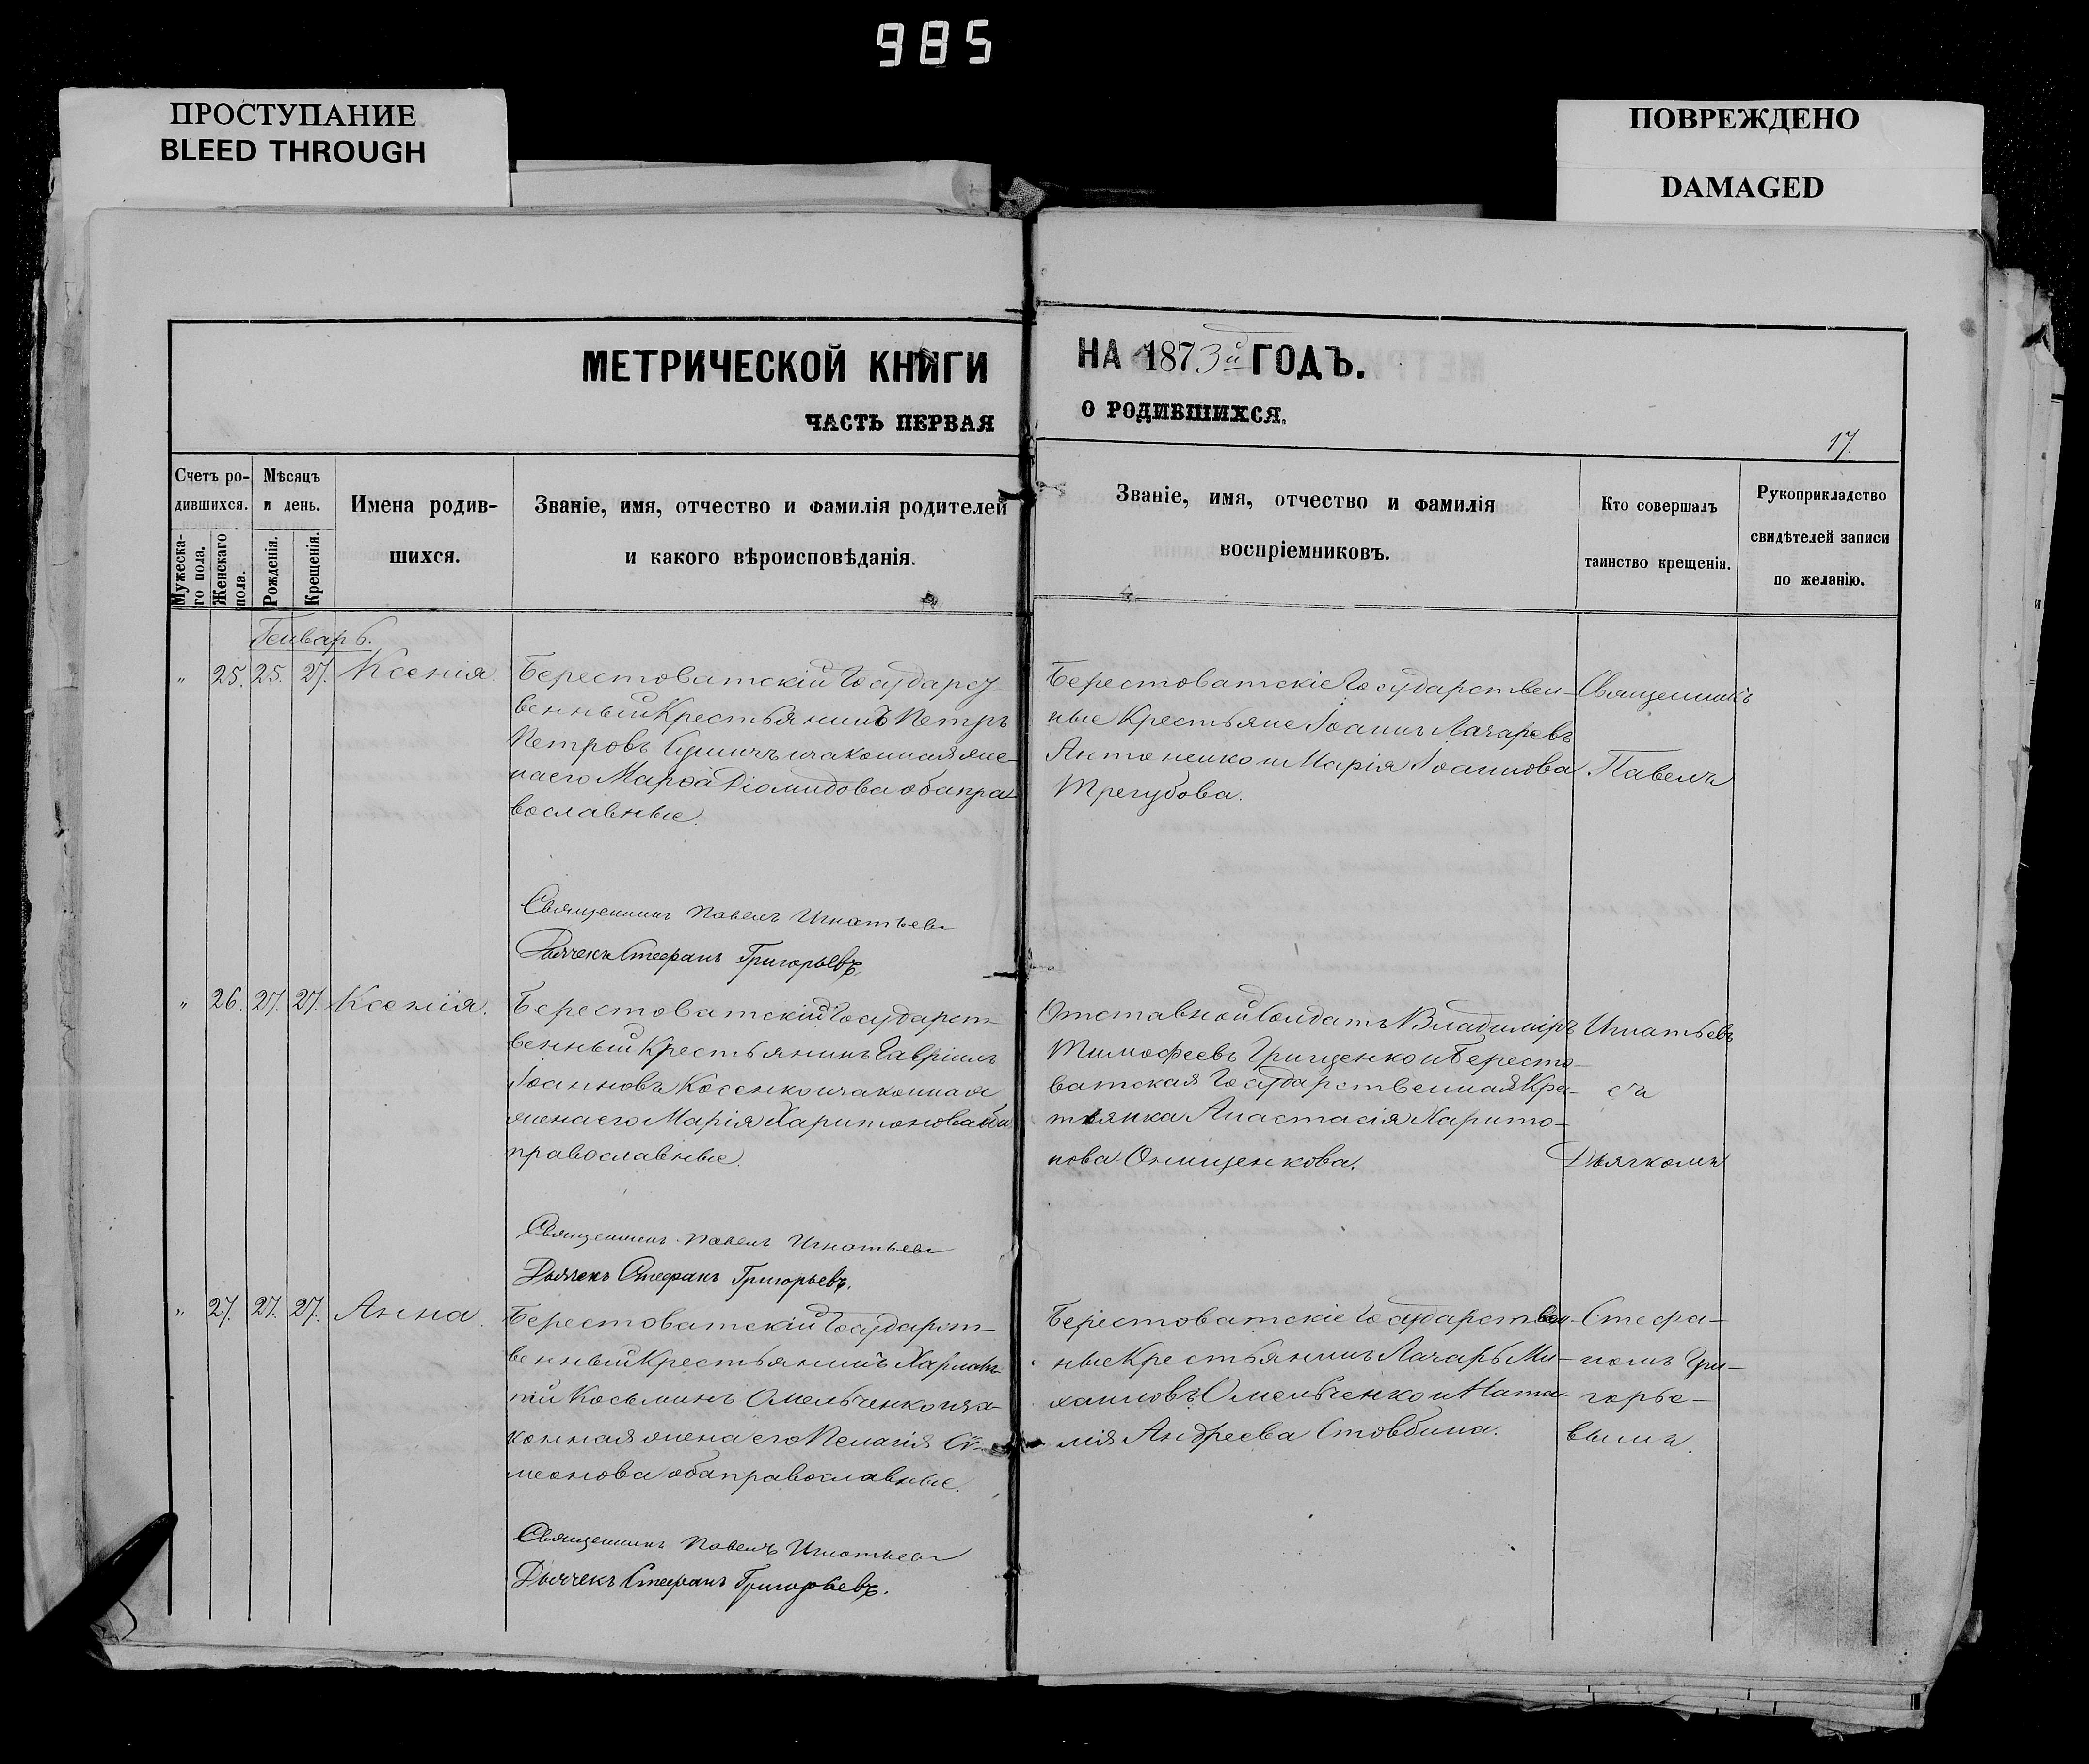 985
ПРОСТУПАНИЕ
BLEED THROUGH
ПОВРЕЖДЕНО
DAMAGED
МЕТРИЧЕСКОЙ КНИГИ
НА 1873й ГОДЪ.
ЧАСТЬ ПЕРВАЯ
О РОДИВШИХСЯ.
17.
Счетъ ро-
дившихся.
Мужеска-
го пола.
Женскаго
пола.
Мѣсяцъ
и день.
Рожденія.
Крещенія.
Имена родив-
шихся.
Званіе, имя, отчество и фамилія родителей
и какого вѣроисповѣданія.
Званіе, имя, отчество и фамилія
воспріемниковъ.
Кто совершалъ
таинство крещенія.
Рукоприкладство
свидѣтелей записи
по желанію.
Генварь.
" 25. 25. 27. Ксенія.
Берестоватскій Государст-
венный Крестьянинъ Петръ
Петровъ и законная же-
на его Марѳа Діомидова оба пра-
вославные.
Священникъ Павелъ Игнатьевъ
Дьячекъ Стефанъ Григорьевъ.
Берестоватскіе Государствен-
ные Крестьяне Іоаннъ Лазаревъ
Антоненко и Марія Іоаннова
Трегубова.
Священникъ
Павелъ
" 26. 27. 27. Ксенія.
Берестоватскій Государст-
венный Крестьянинъ Гавріилъ
Іоанновъ Косенко и законная
жена его Марія Харитонова оба
православные.
Священникъ Павелъ Игнатьевъ
Дьячекъ Стефанъ Григорьевъ.
Отставной Солдатъ Владиміръ
Тимофеевъ Грищенко и Бересто-
ватская Государственная Кре-
тьянка Анастасія Харито-
нова Онищенкова.
Игнатьевъ
съ
Дьячкомъ
" 27. 27. 27. Анна.
Берестоватскій Государст-
венный Крестьянинъ
Косьминъ Омельченко и за-
конная жена его Пелагія Си-
меонова оба православные.
Священникъ Павелъ Игнатьевъ
Дьячекъ Стефанъ Григорьевъ.
Берестоватскіе Государствен-
ные Крестьянинъ Лазарь Ми-
хаиловъ Омельченко и Ната-
лія Андреева Стовбина.
Стефа-
номъ Гри-
горье-
вымъ.